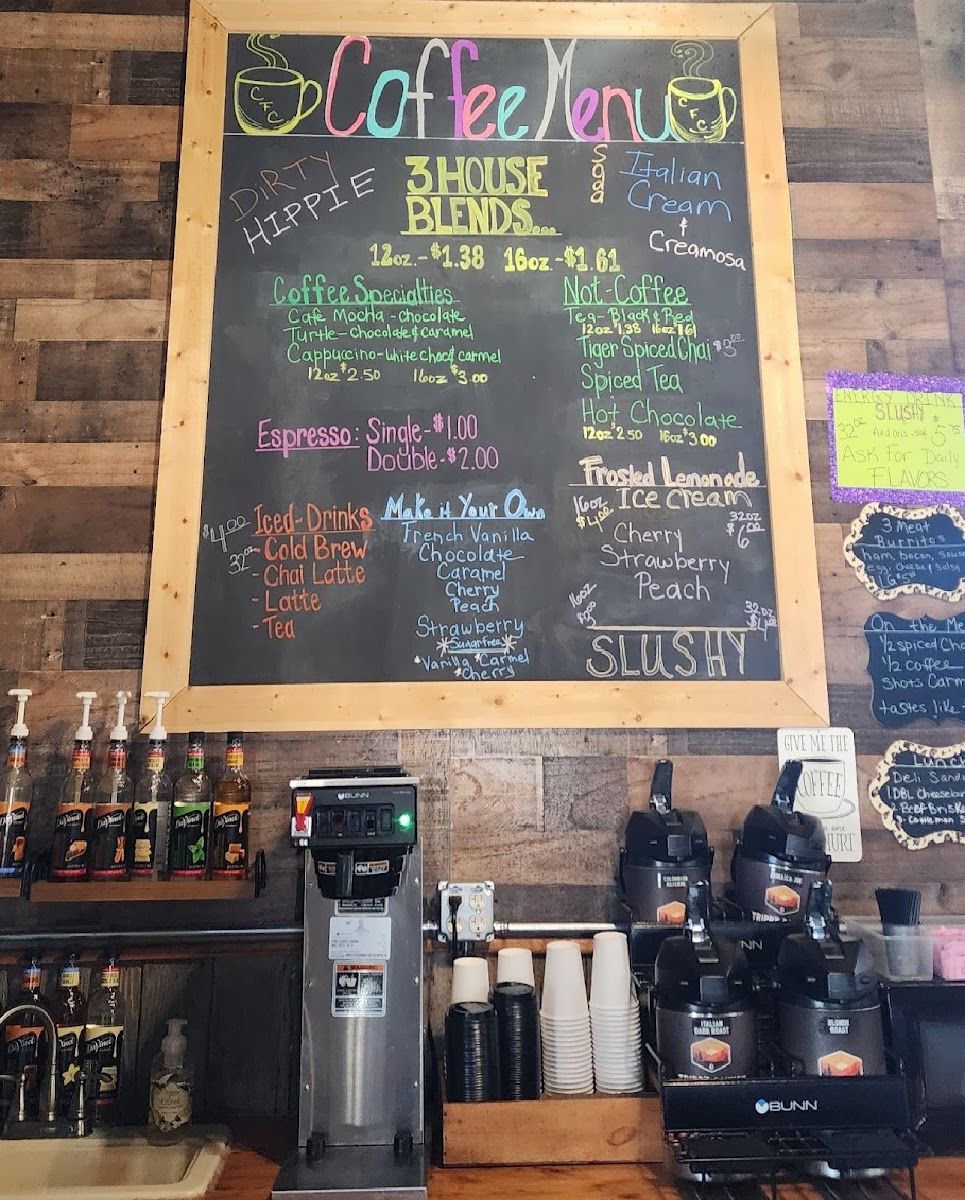 Coffee Menu
CFC
CFC
DIRTY
HIPPIE
3 HOUSE
BLENDS...
12oz.-$1.38 16oz-$1.61
Soda
Italian
Cream
&
Creamosa
Coffee Specialties
Cafe Mocha-chocolate
Turtle-chocolate & caramel
Cappuccino-white choc & carmel
12oz $2.50 16oz $3.00
Not-Coffee
Tea-Black & Red
12oz 1.38 16oz 1.61
Tiger Spiced Chai $3.00
Spiced Tea
Hot Chocolate
12oz 2.50 16oz $3.00
Espresso: Single-$1.00
Double-$2.00
$4.00
32oz
Iced-Drinks
- Cold Brew
- Chai Latte
- Latte
- Tea
Make it Your Own
French Vanilla
Chocolate
Caramel
Cherry
Peach
Strawberry
*Sugarfree*
*Vanilla *Carmel
*Cherry
Frosted Lemonade
Ice Cream
16oz
$4.00
32oz
$6.00
Cherry
Strawberry
Peach
16oz
32oz
$4.00
SLUSHY
ENERGY DRINK
SLUSHY
32oz Add ons .50¢ $5.75
Ask For Daily
FLAVORS
3 Meat
Burritos
ham, bacon, sausa
egg, cheese & salsa
On the Me
1/2 spiced Cha
1/2 coffee
Shots Carm
tastes like
Lunch
Deli Sand
GIVE ME THE
COFFEE
HURT
BUNN
DaVinci
DaVinci
DaVinci
DaVinci
DaVinci
DaVinci
DaVinci
DaVinci
DaVinci
WARNING
ITALIAN
DARK ROAST
BLONDE
ROAST
BUNN